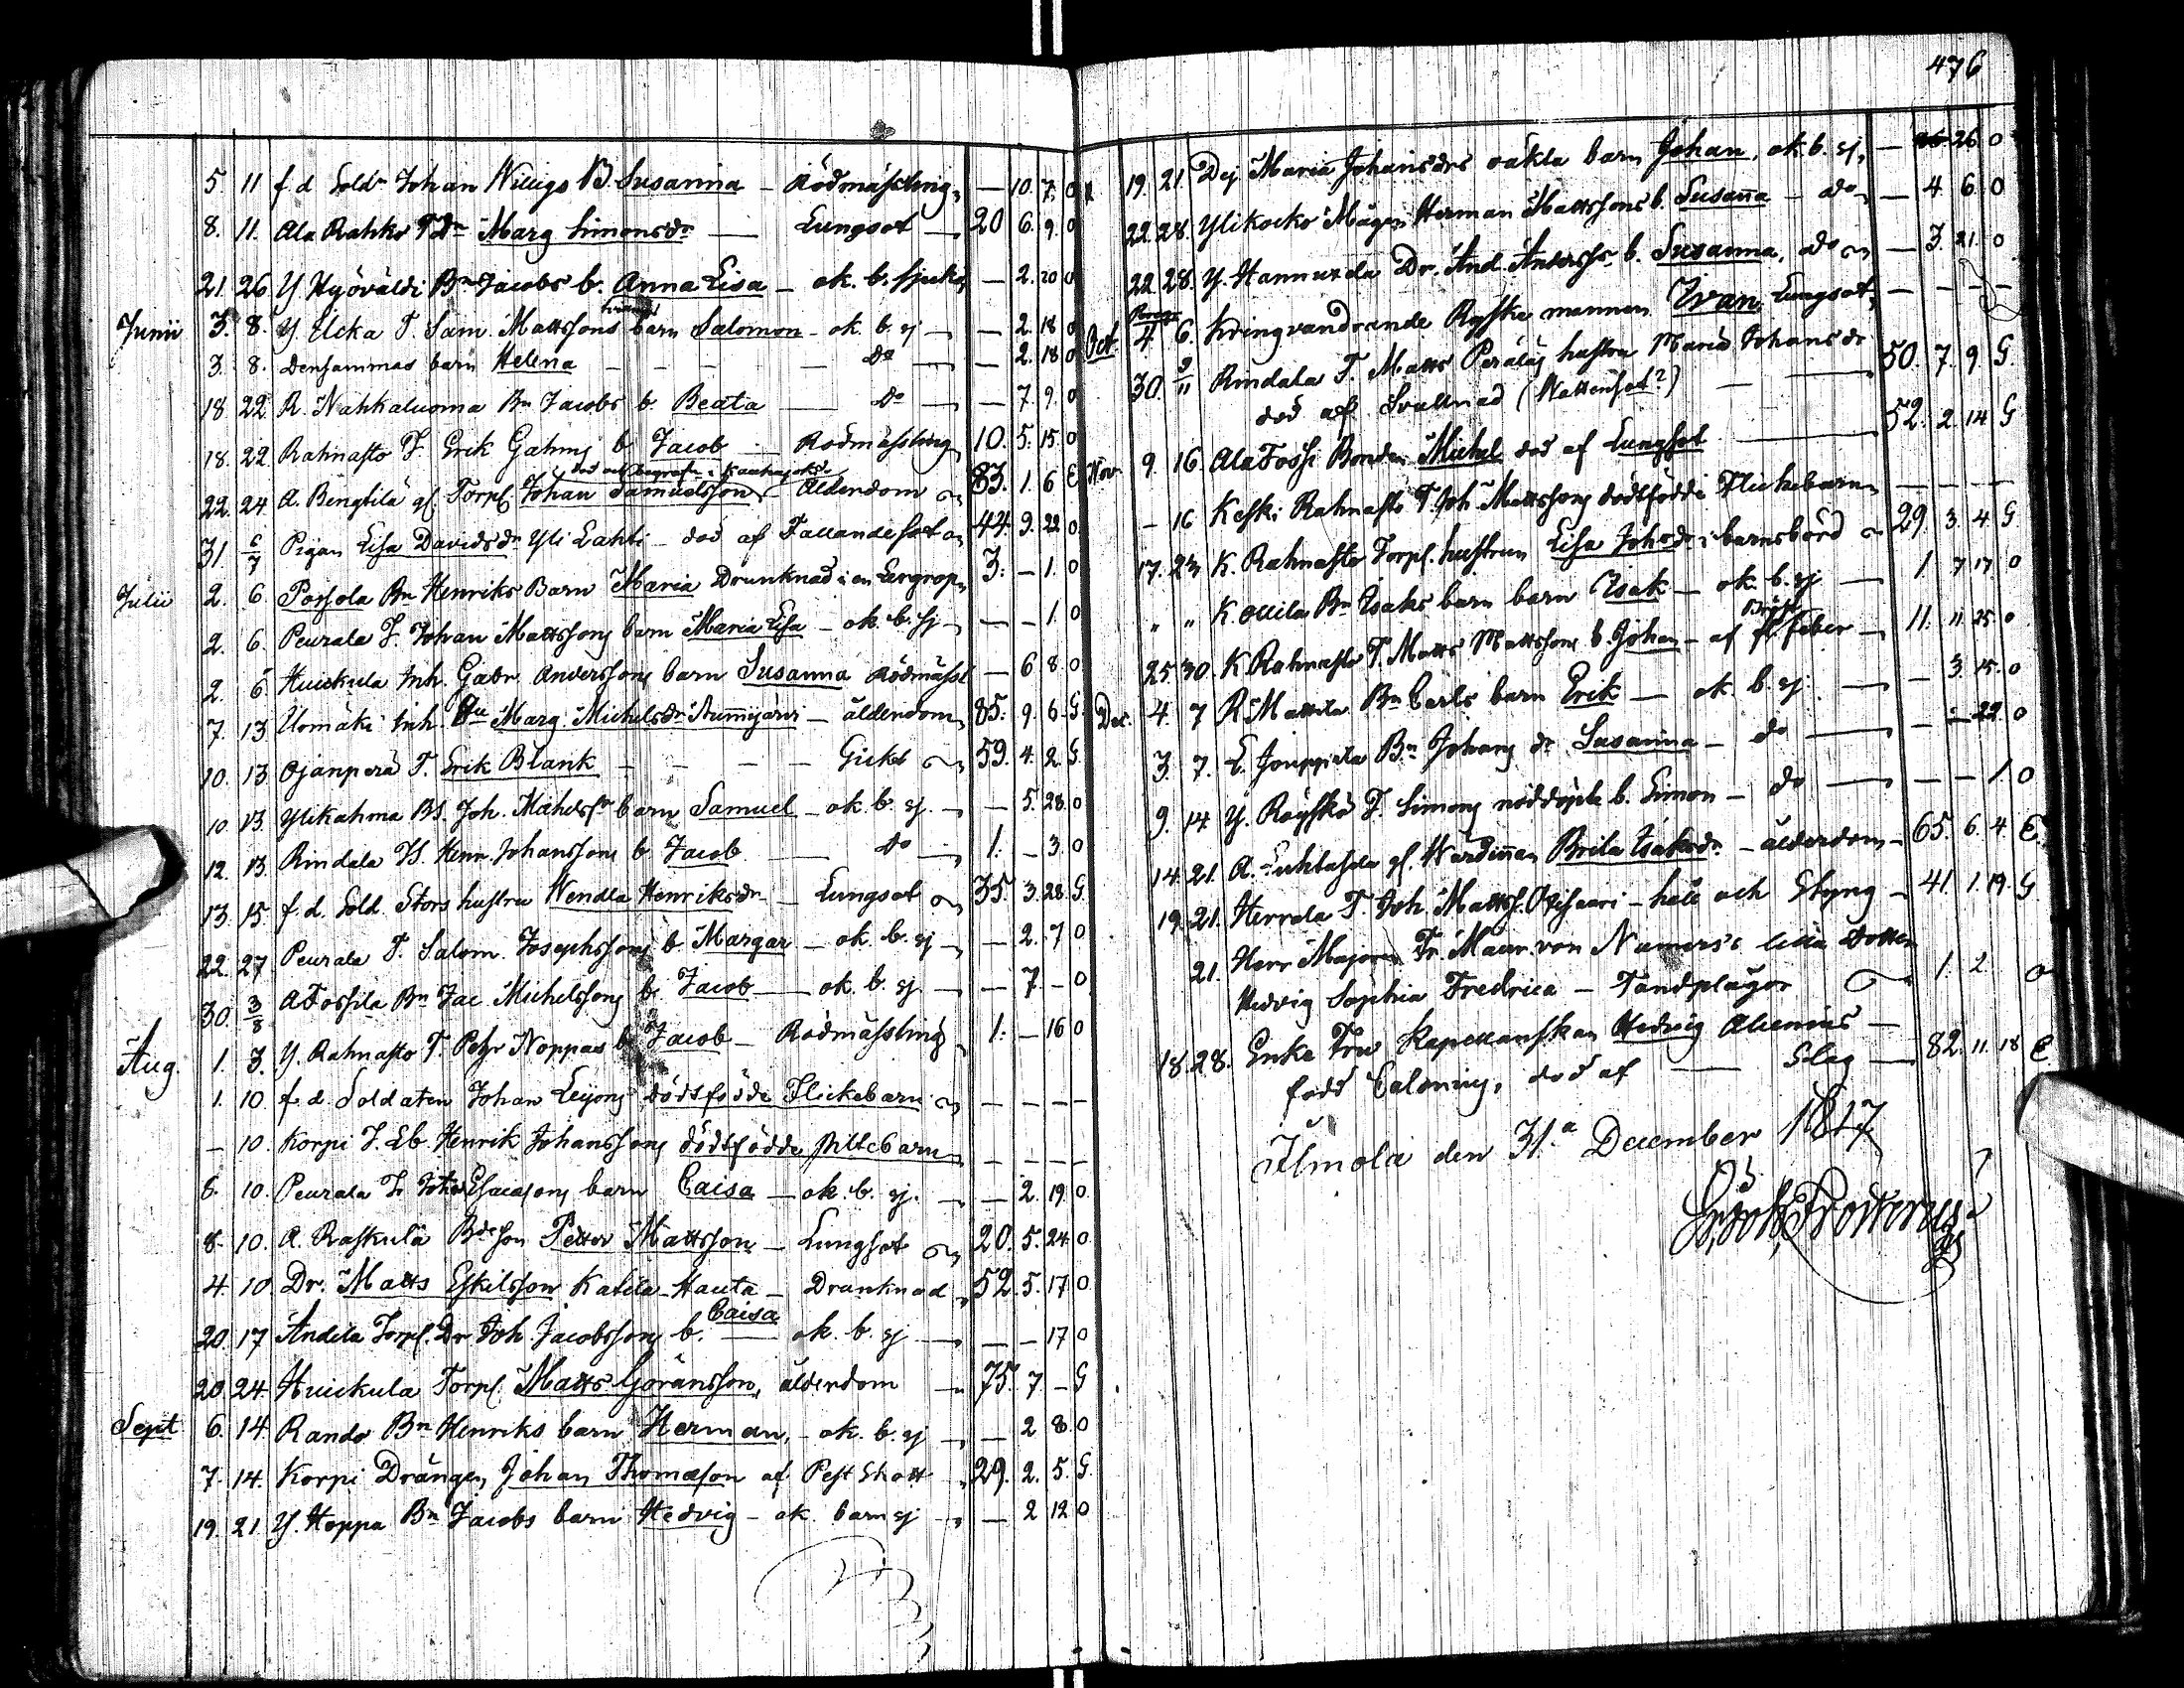 5 11 f.d. Soldn Johan Willigs B. Susanna – Rödmässling – 10. 7. 0
8. 11. Ala Rahko TDr Marg Simonsdr — Lungsot — 20 6. 9. 0
21. 26. Y Hyövälti Bn Jacobs b. Anna Lisa – ok. b. sjukd – 2. 20 0
Junii 3. 8. Y. Ücka T. Sam. Mattssons barn Salomon – ok. b. sj – 2. 18 0
3. 8. densammas barn Helena – – – – do – 2. 18 0
18. 22 R. Nahkaluoma Bn Jacobs b. Beata — do – 7. 9. 0
18. 22 Rahnasto T. Erik Gahms b Jacob – Rödmässling 10. 5. 15. 0
död och begrafn i Kauhajoki
22. 24 A. Bengtilä gl. Torp. Johan Samuelsson – Ålderdom 83. 1. 6 E
31 6/7 Pigan Lisa Davidsdr Yli Lahti – död af Fallandesot 44. 9. 22 0
Julii 2. 6. Possola Bn Henriks Barn Maria Drunknad i en Lergrop 3. – 1. 0
2. 6. Peurala T. Johan Mattssons barn Maria Lisa – ok. b. sj – – 1. 0
2. 6 Huickula Inh. Gabr. Anderssons barn Susanna Rödmässl – 6 8. 0
7. 13 Uomäki Inh. Marg. Michelsdr – ålderdom 85. 9. 6. G
10. 13 Ojanperä T. Erik Blank – – – Gickt 59. 4. 2. G
10. 13. Ylikahma BS. Joh. Michelsn barn Samuel – ok. b. sj. – 5. 28. 0
12. 13. Rindala TS. Henr. Johanssons b Jacob — do 1. – 3. 0
13. 15. f.d. Sold. Stors hustru Wendla Henriksdr – Lungsot 35. 3. 28. G
22. 27 Peurala T. Salom. Josephssons b. Margar – ok. b. sj – 2. 7 0
30. 3/8 A Fossila Bn Jac Michelssons b. Jacob — ok. b. sj – 7. – 0
Aug. 1. 3. Y. Rahnasto T. Petr Noppas b Jacob – Rödmässling 1. – 16 0
1. 10. f.d. Soldaten Johan Leijons dödsfödde Flickebarn – – – –
– 10. Korpi T. Eb. Henrik Johanssons dödsfödde piltebarn – – – –
8. 10. Peurala T. Esaiasons barn Caisa – ok. b. sj. – 2. 19. 0
8. 10. A. Raskula Bdeson Petter Mattsson – Lungsot 20. 5. 24. 0
4. 10 Dr. Matts Eskilsson Katila Hauta – Drunknad 52. 5. 17 0
20. 17 Andila Torp. Dr Joh. Jacobssons b. Caisa — ok. b. sj – – 17 0
20. 24. Huickula Torp. Matts Göransson, ålderdom 75. 7. – G
Sept 6. 14. Rando Bn Henriks barn Herman, – ok. b. sj – 2 8. 0
7. 14. Korpi Drängen Johan Thomasson af Pest Skott 29. 2. 5. G
19. 21. Y. Hoppa Bn Jacobs barn Hedvig – ok. barn sj – 2 12 0
476
19. 21. Maria Johansdrs oäkta barn Johan, ok. b. sj, – 26 0
22. 28. Ylikocko Mågen Herman Mattssons b. Susanna – do – 4. 6. 0
22. 28. Y. Hannuxela Dr. And. Anderss. b. Susanna, do – 3. 21. 0
Oct. 4 6. Kringvandrande Ryske mannen Ivan Lungsot – – – –
30. 3/11 Rindala T. Matts Peräläs hustru Maria Johansdr
död af Svullnad (Wattensot?) — 50. 7. 9. G.
Nov. 9. 16 Ala Fossi Bonden Michel död af Lungsot — 52. 2. 14 G
– 16 Keski Rahnasto T. Joh Mattssons dödsfödde Flickebarn – – – –
17. 23 K. Rahnasto Torp. hustrun Lisa Johsdr i barnsbörd 29. 3. 4 G
" " Kouila Bn Isaks barn barn Isak – ok. b. sj — 1. 7 17. 0
25. 30. K Rahnasto T. Matts Mattssons b. Johan – af Bröst feber – 11. 11. 25. 0
Dec. 4. 7 R Mattila Bn Carls barn Erik — ok. b. sj – 3. 15. 0
3. 7. L. Jouppila Bn Johans dr Susanna – do — – 22. 0
9. 14 Y. Röyskö T. Simons nöddöpte b. Simon – do — – – 1. 0
14. 21. A. gl. Wärdinnan Brita Isaksdr – ålderdom – 65. 6. 4. E.
19. 21. Herrala T. Joh. Mattss. – håll och Styng – 41. 1. 19. G
21. Herr Majoren Fr. Maur. von Numers's lilla dotter
Hedvig Sophia Fredrica – Tandplågor 1. 2. 0
18. 28. Enke Fru Kapellanskan Hedvig Alcenius –
född Calonius, död af — Slag — 82. 11. 18 E
Ilmola den 31a December 1817